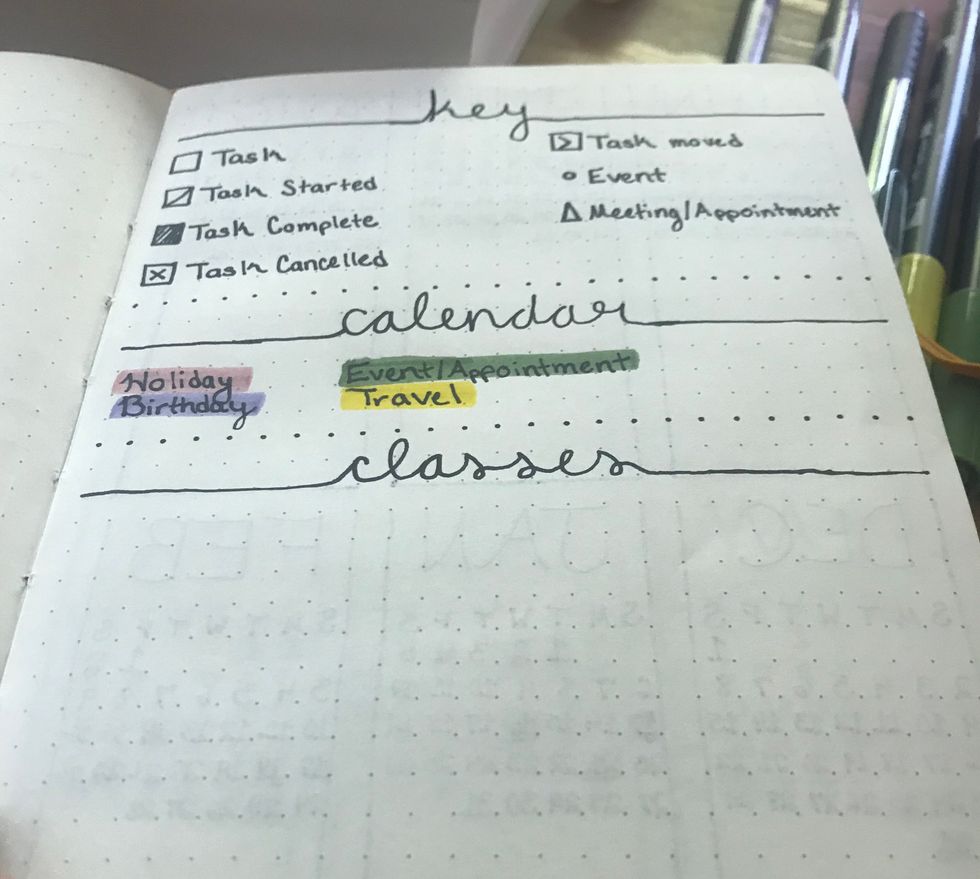 key
Task
Task Started
Task Complete
Task Cancelled
Task moved
Event
Meeting/Appointment
calendar
Holiday
Birthday
Event/Appointment
Travel
classes